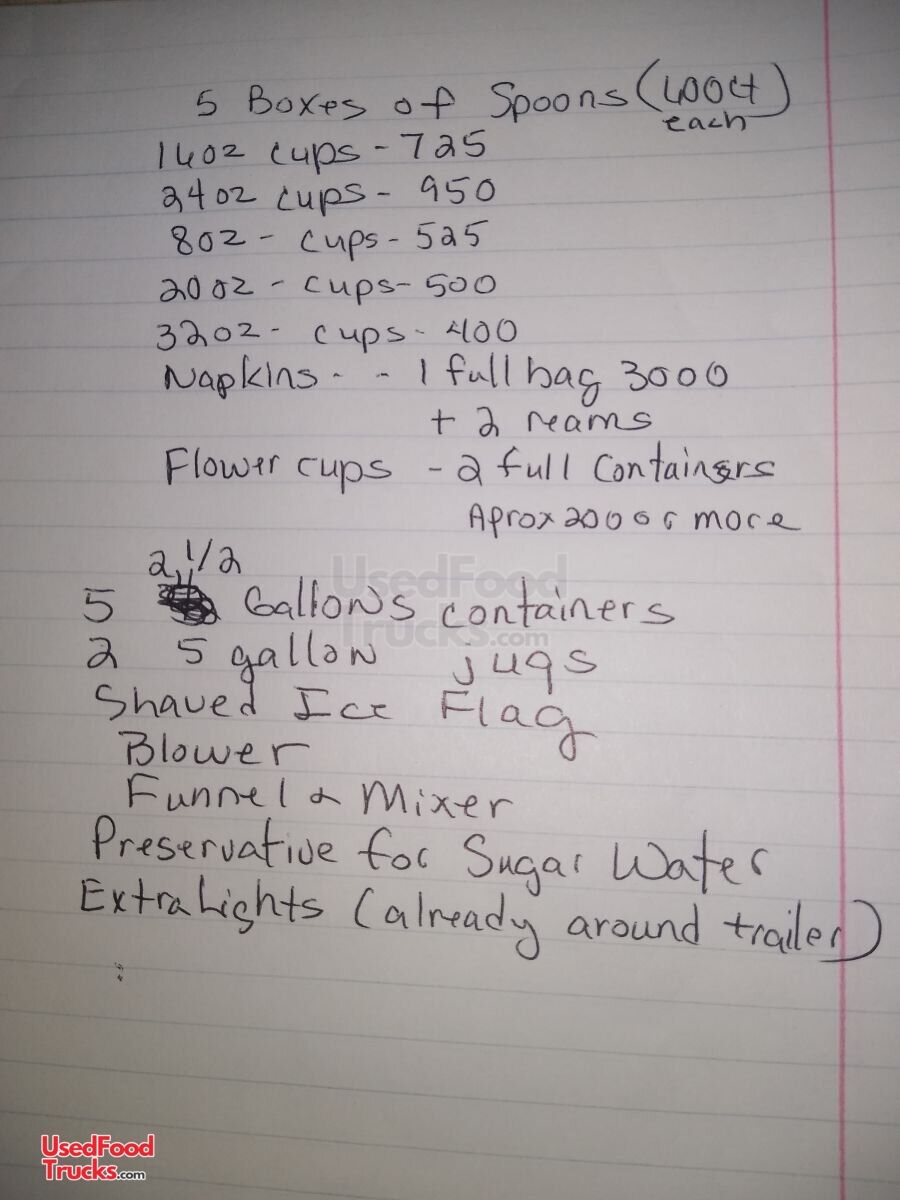 5 Boxes of Spoons (400ct)
each
16oz cups - 725
24oz cups - 950
8oz - cups - 525
20oz - cups - 500
32oz - cups - 400
Napkins - - 1 full bag 3000
+ 2 reams
Flower cups - 2 full Containers
Aprox 200 or more
2 1/2
5 Gallons containers
2 5 gallon jugs
Shaved Ice Flag
Blower
Funnel & Mixer
Preservative for Sugar Water
Extra Lights (already around trailer)
UsedFood
Trucks.com
UsedFood
Trucks.com